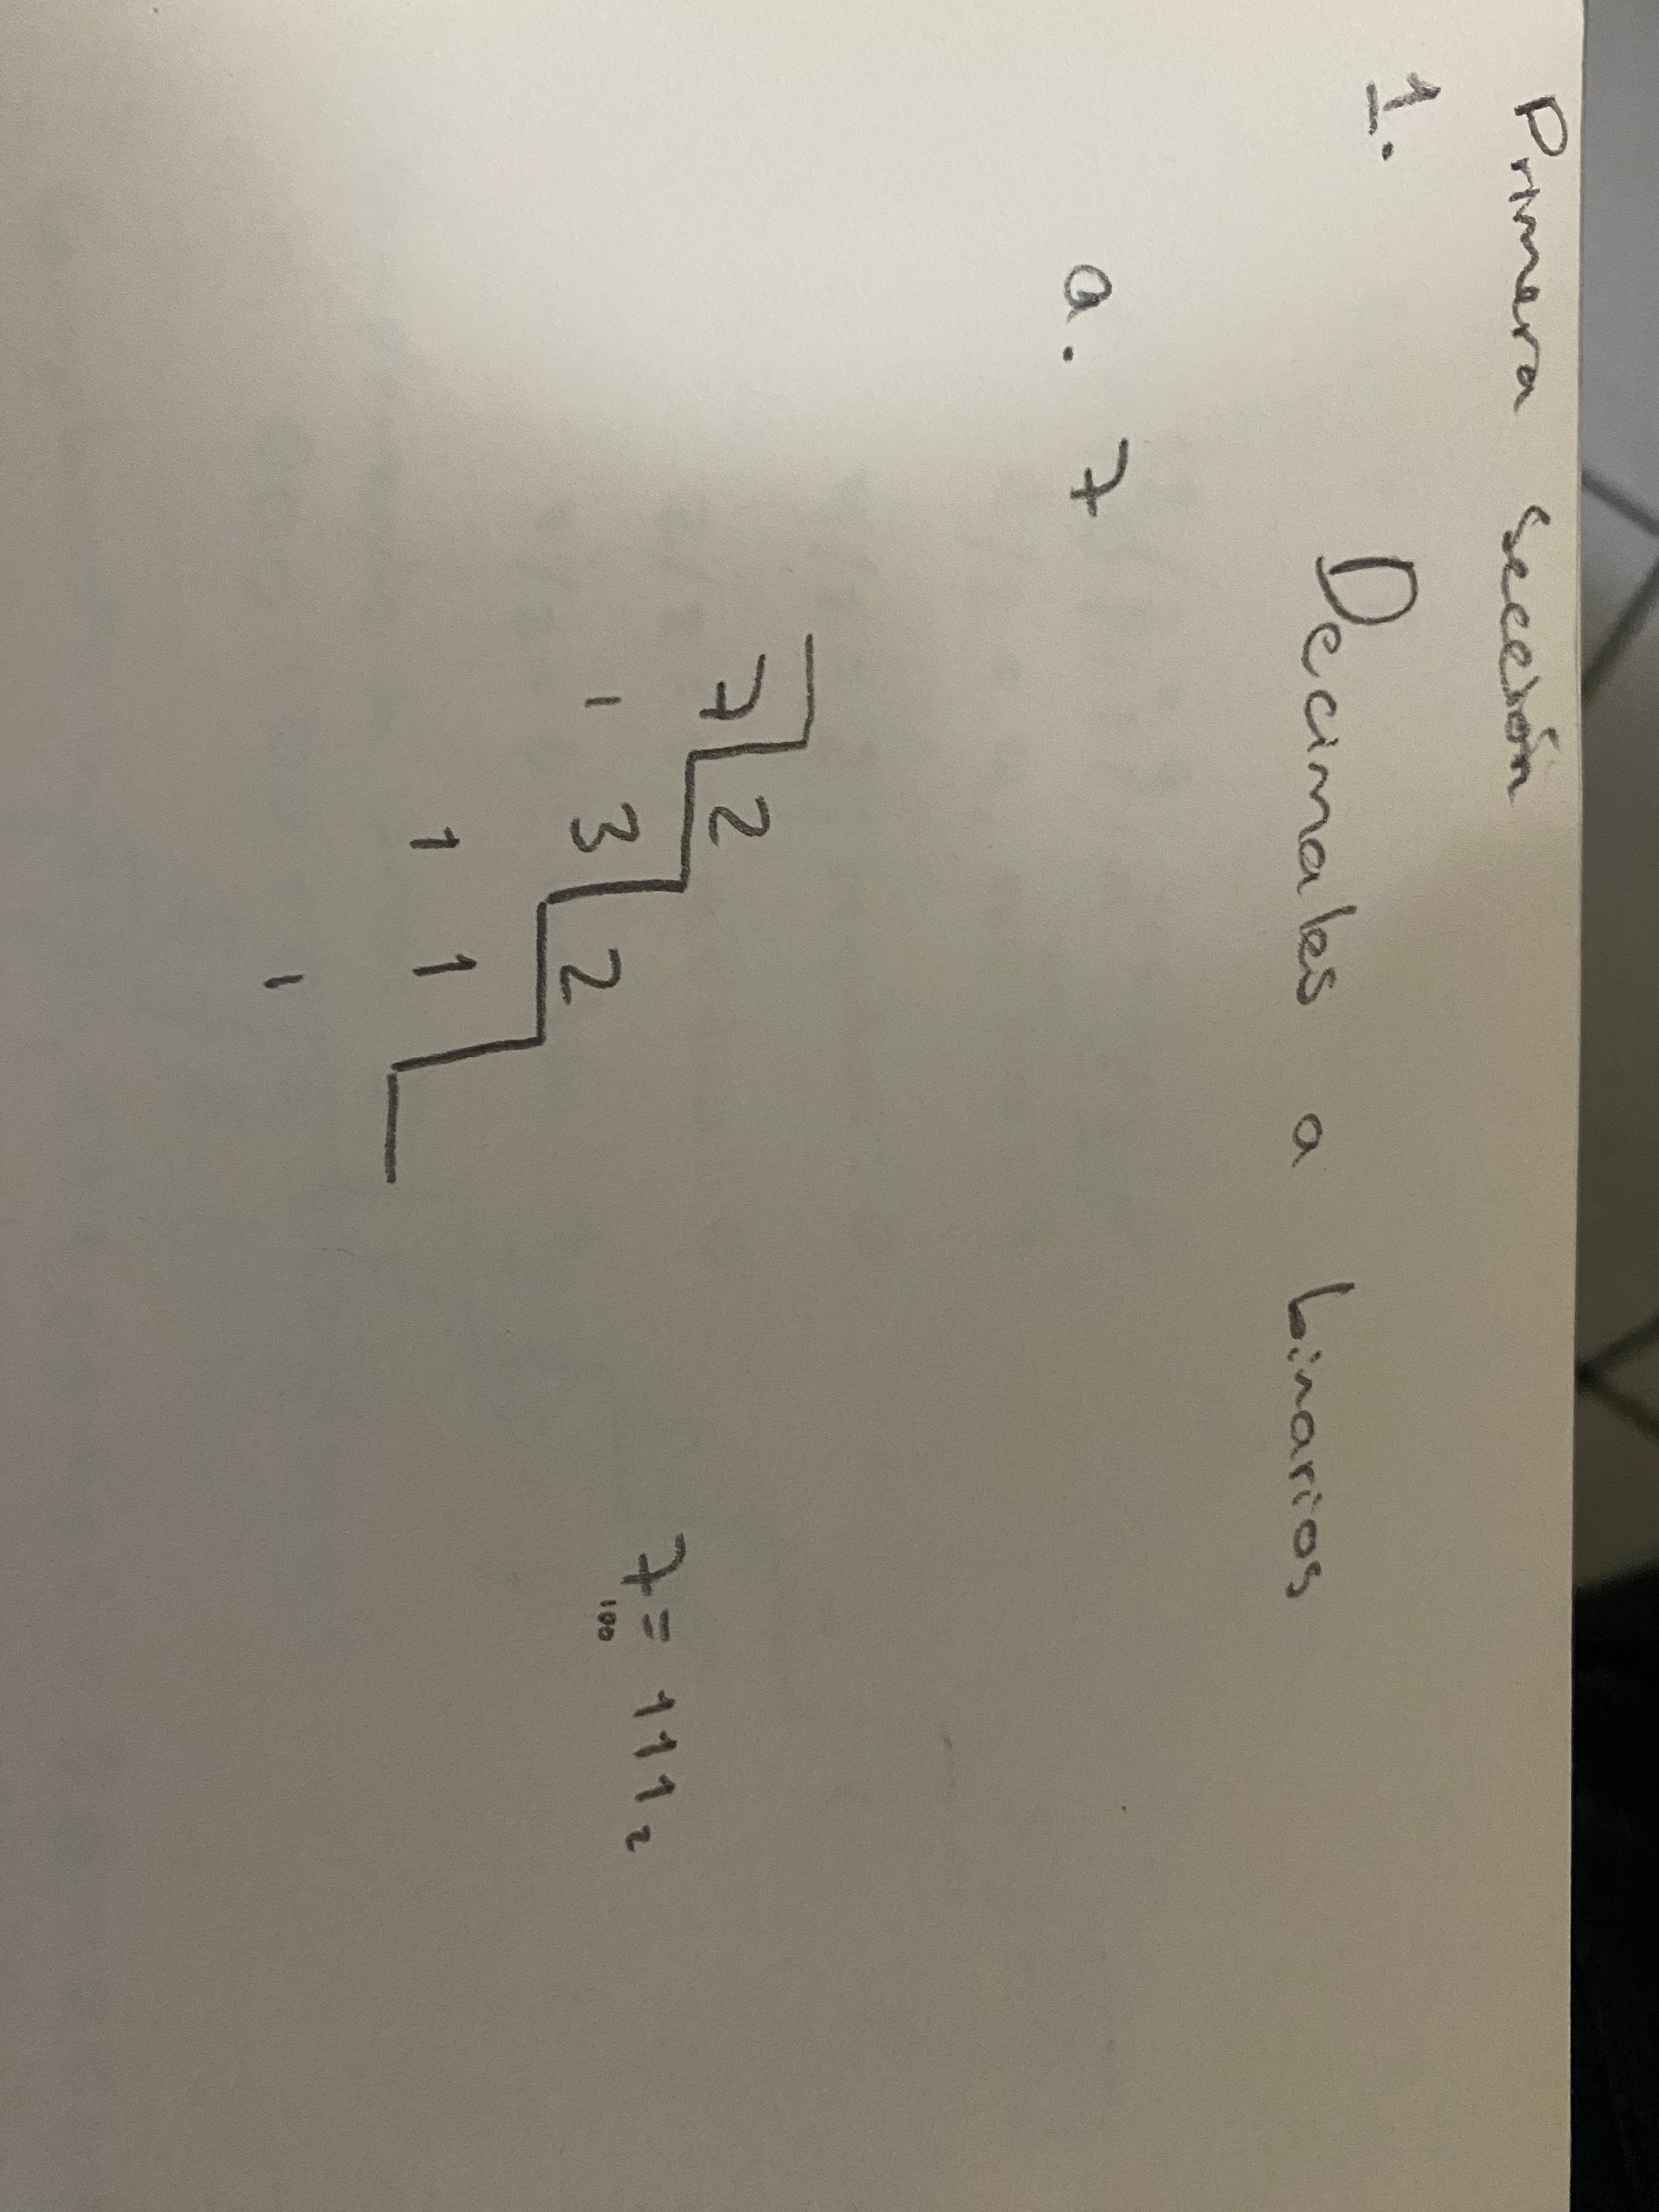 Primera sección
1.
Decimales a binarios
a. 7
7 2
1 3 2
1 1
1
7 = 111₂